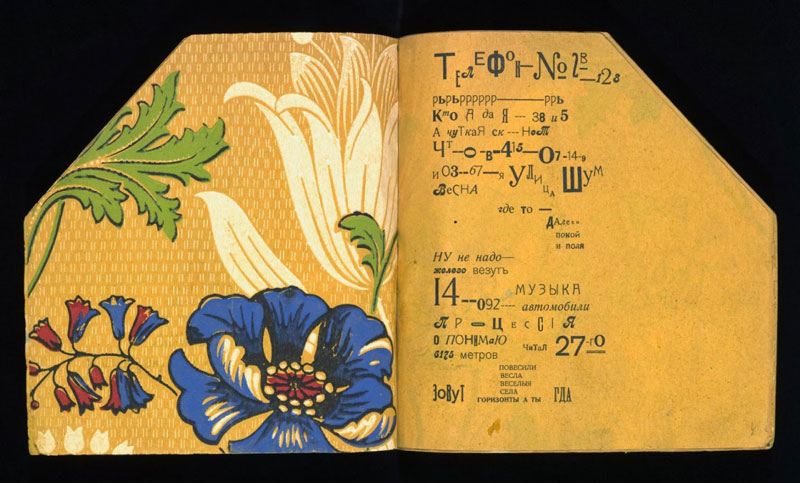 Телефон № 2В—128
рьрьрррррр———ррь
Кто А да Я — 38 и 5
А чуТкаЯ ск---НоТ
Чт—о-в-415—О7-14-9
и О3--67—я УЛиЦА Шум
ВеСНА
где то —
ДАлеко
покой
и поля
НУ не надо—
железо везутъ
14--092— МУЗЫКА автомобили
ПР—ЦеССІЯ
О ПОНИМаЮ ЧиТаЛ 27-го
6175 метров
ПОВЕСИЛИ
ВЕСЛА
ВЕСЕЛЫЯ
СЕЛА
ЗОВУТ ГОРИЗОНТЫ А ТЫ ГДА